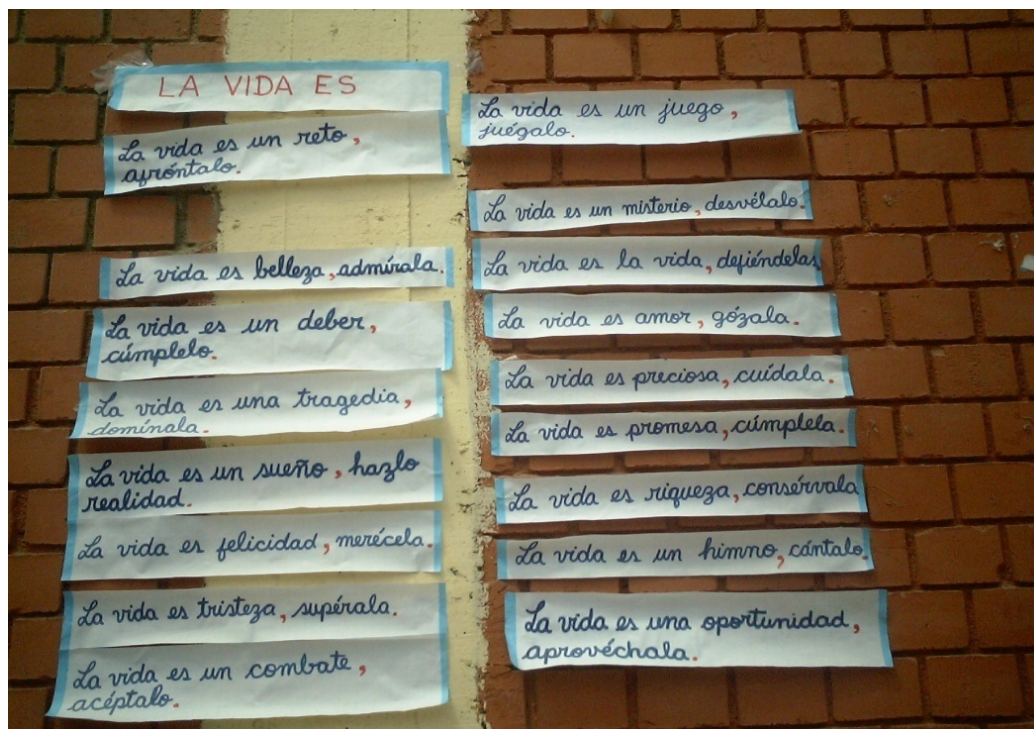 LA VIDA ES
La vida es un reto,
afróntalo.
La vida es belleza, admírala.
La vida es un deber,
cúmplelo.
La vida es una tragedia,
domínala.
La vida es un sueño, hazlo
realidad.
La vida es felicidad, merécela.
La vida es tristeza, supérala.
La vida es un combate,
acéptalo.
La vida es un juego,
juégalo.
La vida es un misterio, desvélalo.
La vida es la vida, defiéndelas
La vida es amor, gózala.
La vida es preciosa, cuídala.
La vida es promesa, cúmplela.
La vida es riqueza, consérvala
La vida es un himno, cántalo.
La vida es una oportunidad,
aprovéchala.